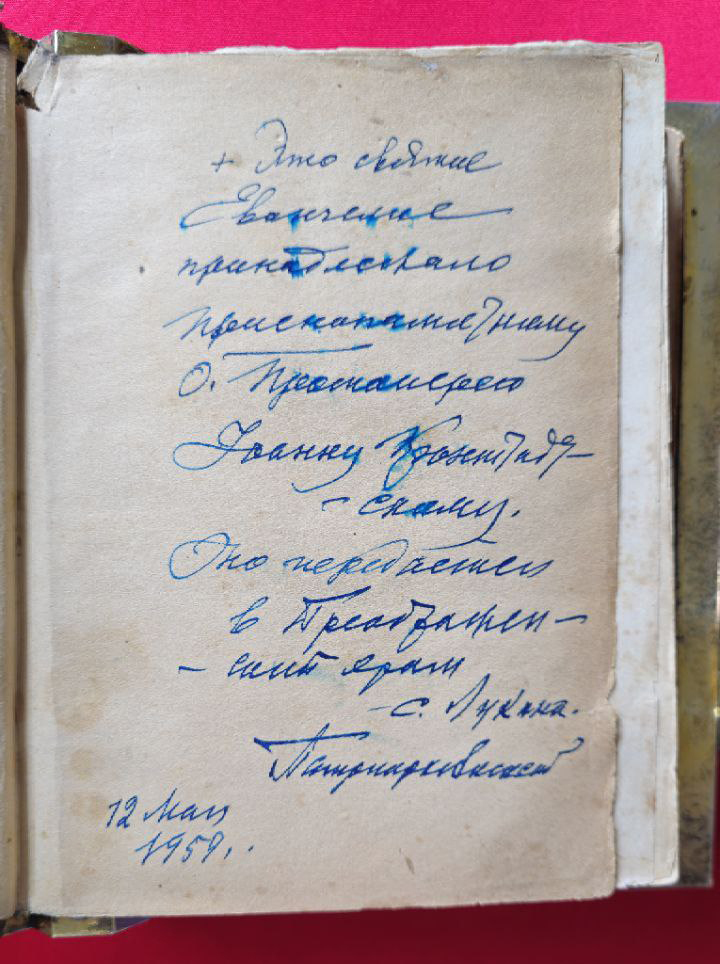 + Это святое
Евангелие
принадлежало
Приснопамятному
О. Протоиерею
Иоанну Кронштадт-
- скому.
Оно передается
в Преображен-
- ский храм
с. Лукина.
12 Мая
1959.